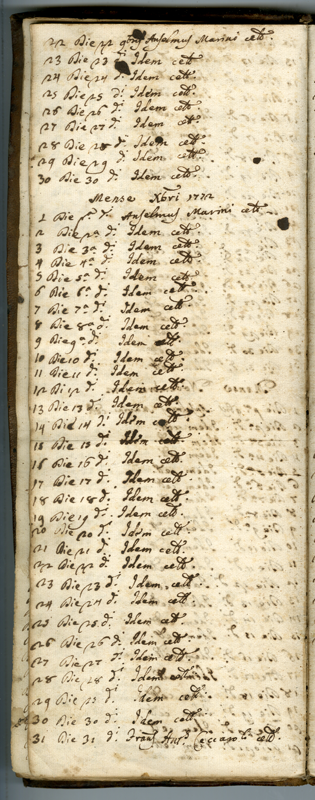 22 Die 22 Anselmus Marini cett.
23 Die 23 d.i Idem cett.
24 Die 24 d.i Idem cett.
25 Die 25 d.i Idem cett.
26 Die 26 d.i Idem cett.
27 Die 27 d.i Idem cett.
28 Die 28 d.i Idem cett.
29 Die 29 d.i Idem cett.
30 Die 30 d.i Idem cett.
Mense Xbri 1772
1 Die p.a d.i Anselmus Marini cett.
2 Die 2.a d.i Idem cett.
3 Die 3.a d.i Idem cett.
4 Die 4.a d.i Idem cett.
5 Die 5.a d.i Idem cett.
6 Die 6.a d.i Idem cett.
7 Die 7.a d.i Idem cett.
8 Die 8.a d.i Idem cett.
9 Die 9.a d.i Idem cett.
10 Die 10 d.i Idem cett.
11 Die 11 d.i Idem cett.
12 Die 12 d.i Idem cett.
13 Die 13 d.i Idem cett.
14 Die 14 d.i Idem cett.
15 Die 15 d.i Idem cett.
16 Die 16 d.i Idem cett.
17 Die 17 d.i Idem cett.
18 Die 18 d.i Idem cett.
19 Die 19 d.i Idem cett.
20 Die 20 d.i Idem cett.
21 Die 21 d.i Idem cett.
22 Die 22 d.i Idem cett.
23 Die 23 d.i Idem cett.
24 Die 24 d.i Idem cett.
25 Die 25 d.i Idem cett.
26 Die 26 d.i Idem cett.
27 Die 27 d.i Idem cett.
28 Die 28 d.i Idem
29 Die 29 d.i Idem cett.
30 Die 30 d.i Idem cett.
31 Die 31 d.i Fran.s Ant.s cett.